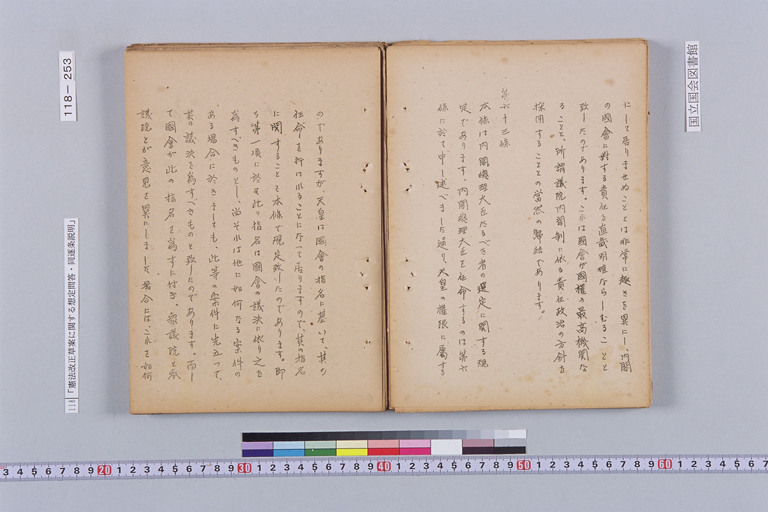 にして居りませぬこととは非常に趣きを異にし、内閣
の國會に対する責任を直截明確ならしむることと
致したのであります。これは國會が國權の最高機関な
ること、所謂議院内閣制に依る責任政治の方針を
採用することとの当然の帰結であります。
第六十三條
本條は内閣總理大臣たるべき者の選定に関する規
定であります。内閣總理大臣を任命するのは第六
條に於て申し述べました通り、天皇の權限に属する
のでありますが、天皇は國會の指名に基いて、其の
任命を行はれることになつて居りますので、其の指名
に関することを本條で規定致したのであります。即
ち第一項に於て此の指名は國會の議決に依り之を
為すべきものとし、尚それは他に如何なる案件の
ある場合に於きましても、此等の案件に先立つて、
其の議決を為すべきものと致したのであります。而し
て國會が此の指名を為すに付き、衆議院と參
議院とが意見を異にしました場合には、これを如何
118-253
118「憲法改正草案に関する想定問答・同逐条説明」
国立国会図書館
3 4 5 6 7 8 9 20 1 2 3 4 5 6 7 8 9 30 1 2 3 4 5 6 7 8 9 40 1 2 3 4 5 6 7 8 9 50 1 2 3 4 5 6 7 8 9 60 1 2 3 4 5 6 7